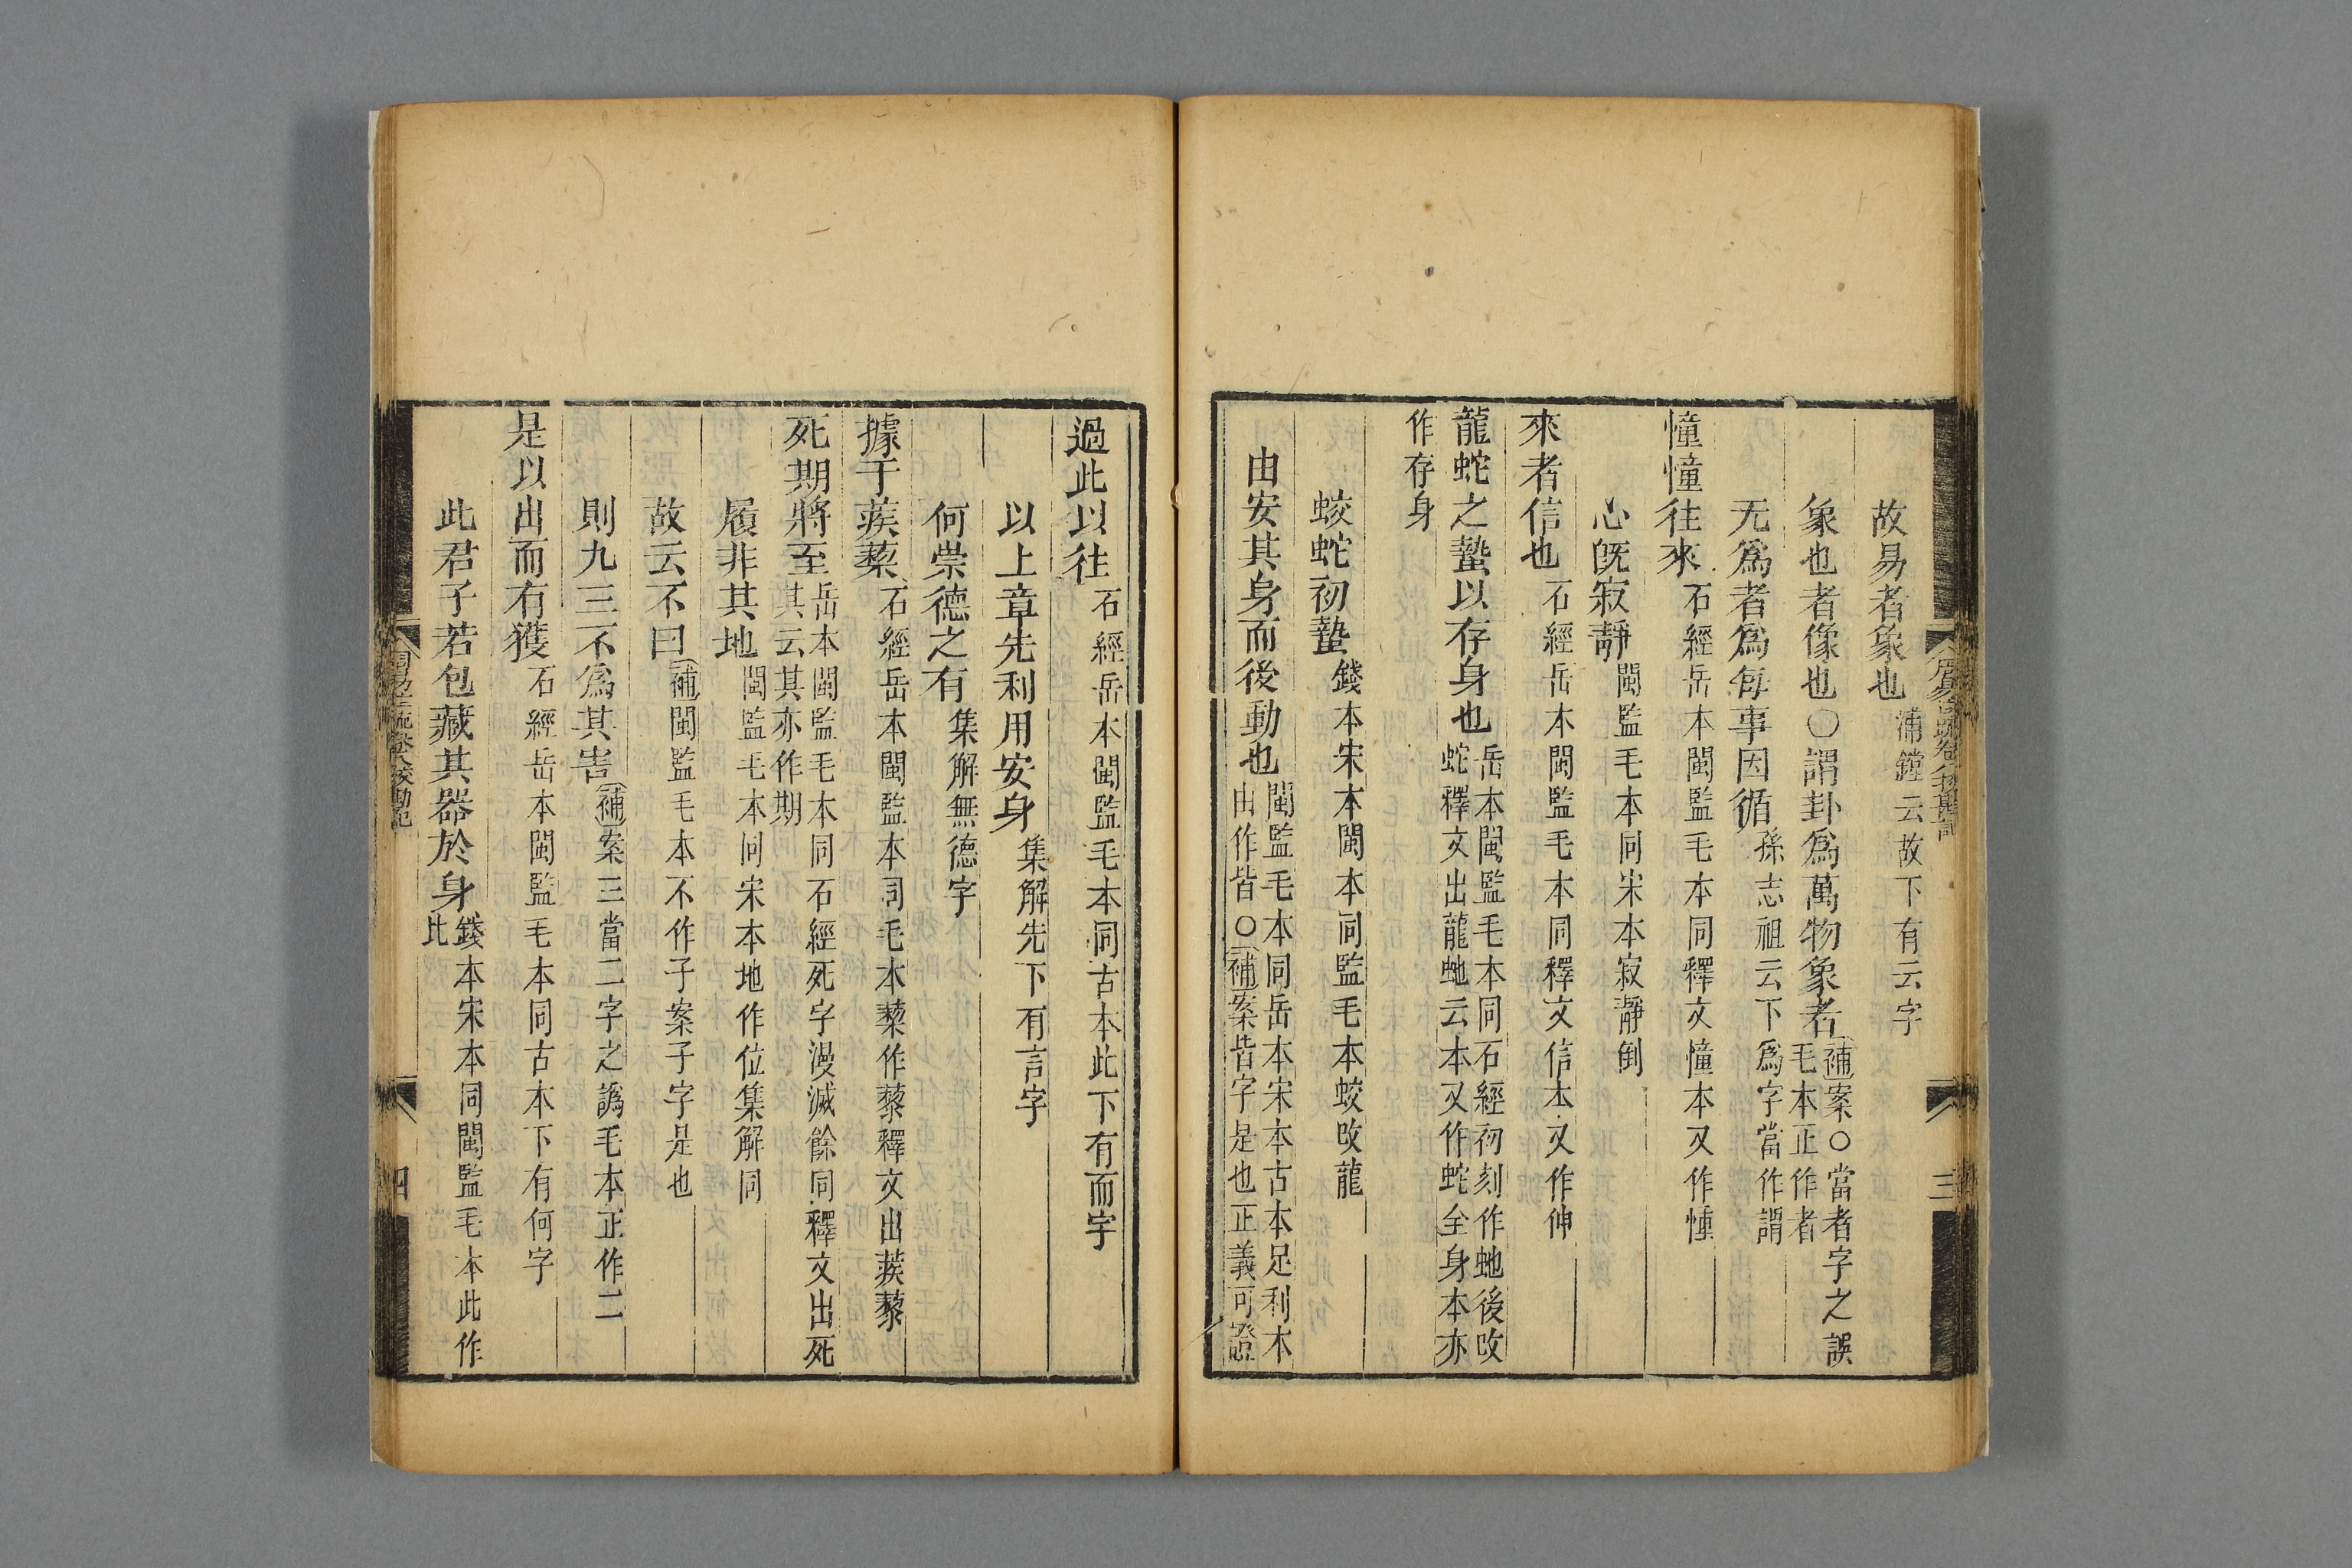 故易者象也浦鏜云故下有云字
象也者像也○謂卦爲萬物象者補案○當者字之誤毛本正作者
无爲者爲每事因循孫志祖云下爲字當作謂
憧憧往來石經岳本閩監毛本同釋文憧本又作㣫
心旣寂靜閩監毛本同宋本寂靜倒
來者信也石經岳本閩監毛本同釋文信本又作伸
龍蛇之蟄以存身也岳本閩監毛本同石經初刻作虵後改蛇釋文出龍虵云本又作蛇全身本亦
作存身
蛟蛇初蟄錢本宋本閩本同監毛本蛟改龍
由安其身而後動也閩監毛本同岳本宋本古本足利本由作皆○補案皆字是也正義可證
三
過此以往石經岳本閩監毛本同古本此下有而字
以上章先利用安身集解先下有言字
何崇德之有集解無德字
據于蒺蔾石經岳本閩監本同毛本蔾作藜釋文出蒺藜
死期將至岳本閩監毛本同石經死字漫滅餘同釋文出死其云其亦作期
履非其地閩監毛本同宋本地作位集解同
故云不曰補閩監毛本不作子案子字是也
則九三不爲其害補案三當二字之譌毛本正作二
是以出而有獲石經岳本閩監毛本同古本下有何字
此君子若包藏其器於身錢本宋本同閩監毛本此作比
周易注疏卷八校勘記
四